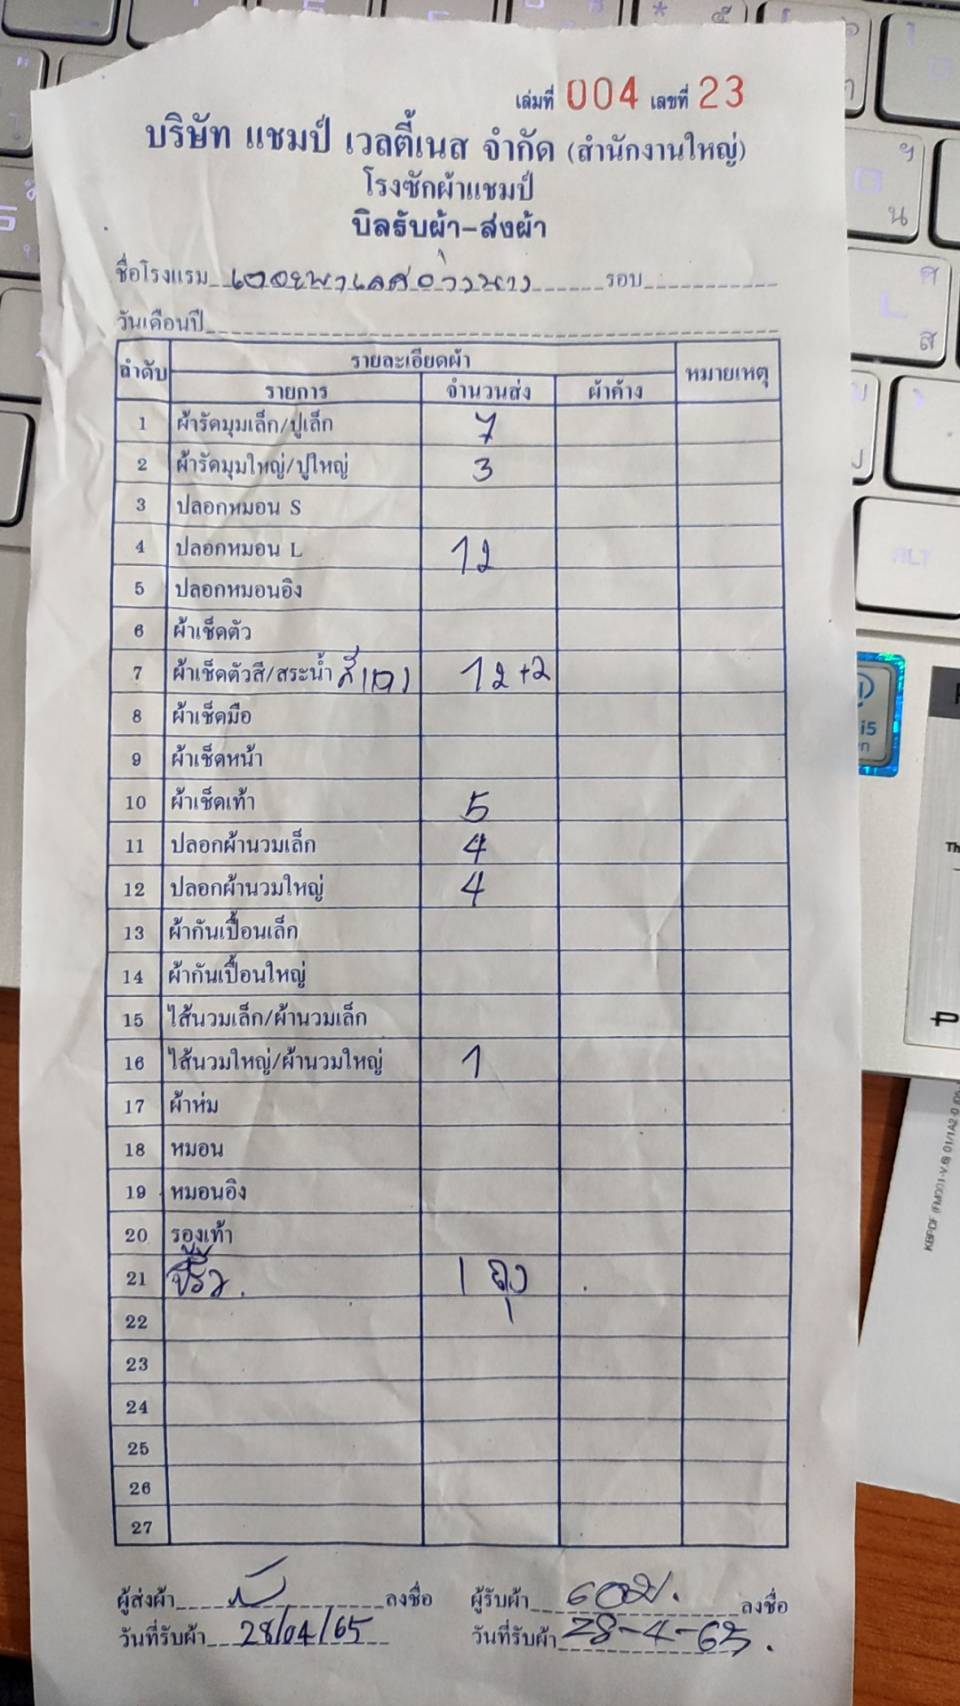 เล่มที่ 004 เลขที่ 23
บริษัท แชมป์ เวลตี้เนส จำกัด (สำนักงานใหญ่)
โรงซักผ้าแชมป์
บิลรับผ้า-ส่งผ้า
ชื่อโรงแรม รอบ
วันเดือนปี
ลำดับ รายละเอียดผ้า หมายเหตุ
รายการ จำนวนส่ง ผ้าค้าง
1 ผ้ารัดมุมเล็ก/ปูเล็ก 7
2 ผ้ารัดมุมใหญ่/ปูใหญ่ 3
3 ปลอกหมอน S
4 ปลอกหมอน L 12
5 ปลอกหมอนอิง
6 ผ้าเช็ดตัว
7 ผ้าเช็ดตัวสี/สระน้ำ 12+2
8 ผ้าเช็ดมือ
9 ผ้าเช็ดหน้า
10 ผ้าเช็ดเท้า 5
11 ปลอกผ้านวมเล็ก 4
12 ปลอกผ้านวมใหญ่ 4
13 ผ้ากันเปื้อนเล็ก
14 ผ้ากันเปื้อนใหญ่
15 ไส้นวมเล็ก/ผ้านวมเล็ก
16 ไส้นวมใหญ่/ผ้านวมใหญ่ 1
17 ผ้าห่ม
18 หมอน
19 หมอนอิง
20 รองเท้า
21 1 ถุง
22
23
24
25
26
27
ผู้ส่งผ้า ลงชื่อ ผู้รับผ้า ลงชื่อ
วันที่รับผ้า 28/04/65 วันที่รับผ้า 28-4-65.